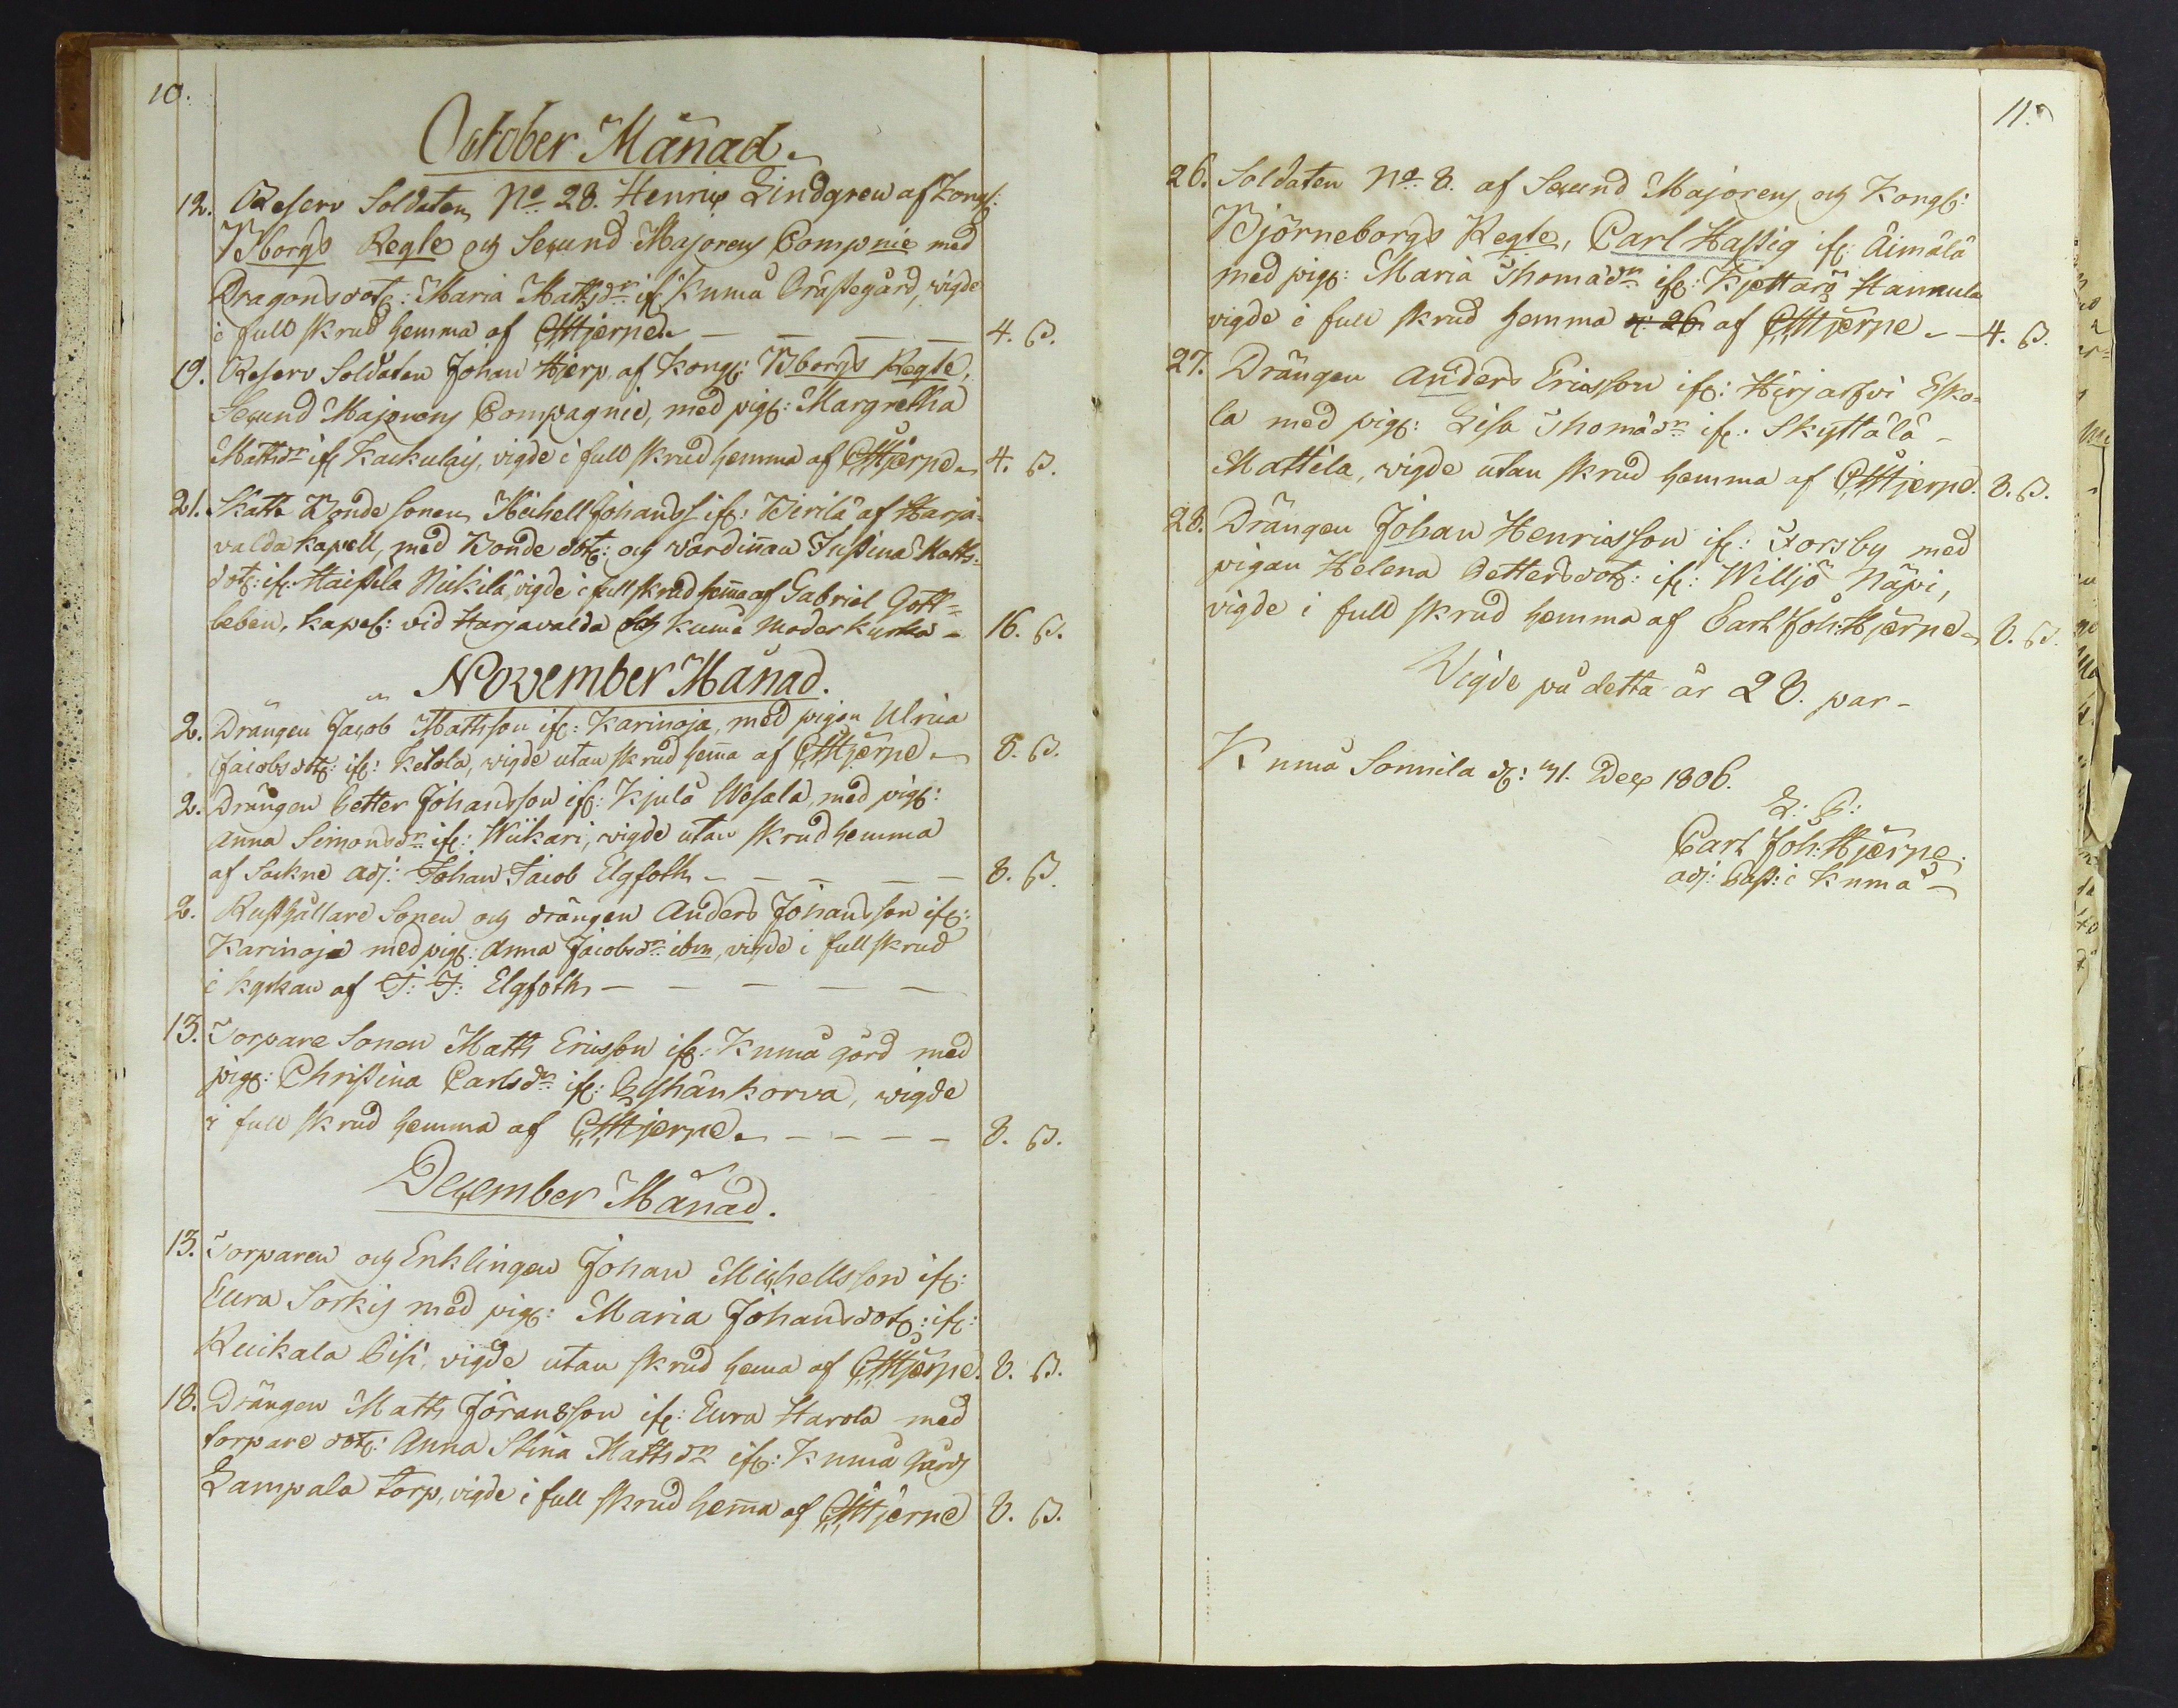 10.
October Månad.
12. Reserv Soldaten No 28. Henric Lindgren af Kongl:
Bborgs Regte och Secund Majorens Compnie med
Dragonsdotr: Maria Mattsdr ifr: Kumå Prästegård, vigde
i full skrud hemma af CJHjerpe. 4. ß.
19. Reserv Soldaten Johan Hjerp af Kongl: Bborgs Regte,
Secund Majorens Compagnie, med pig: Margretha
Mattsdr ifr Kaukulais, vigde i full skrud hemma af CJHjerpe 4. ß.
21. Skatte Bonde sonen Michell Johanss: ifr: Pirilä af Harja-
valda kapell, med Bonde dotr: och värdinnan Justina Matts-
dotr: ifr: Haistila Nickilä, vigde i full skrud hema af Gabriel Gott=
leben, kapel: vid Harjavalda och Kumå Moderkyrka - 16. ß.
November Månad.
2. Drängen Jacob Mattsson ifr: Karinoja, med pigan Ulrica
Jacobsdotr: ifr: Ketola, vigde utan skrud hema af CJHjerpe 8. ß.
2. Drängen Petter Johansson ifr: Kjulo Wesala, med pig:
Anna Simonsdr ifr: Wiikari, vigde utan skrud hemma
af Sockne adj: Johan Jacob Elgfoth 8. ß.
2. Rusthållare Sonen och drängen Anders Johansson ifr:
Karinoja med pig: Anna Jacobsdr ibm, vigde i full skrud
i kyrkan af J: J: Elgfoth
13. Torpare Sonen Matts Ericsson ifr: Kumå gård med
pig: Christina Carlsdr ifr: Pyhänkorva, vigde
i full skrud hemma af CJHjerpe. 8. ß.
December Månad.
13. Torparen och Enklingen Johan Michellsson ifr:
Eura Sorkis med pig: Maria Johansdotr: ifr:
Kuckala Pisi, vigde utan skrud hema af CJHjerpe. 8. ß.
18. Drängen Matts Jöransson ifr: Eura Harola med
torpare dotr: Anna Stina Mattsdr ifr: Kumå gårds
Lampala torp, vigde i full skrud hema af CJHjerpe 8. ß.
11.
26. Soldaten No 8. af Secund Majorens och Kongl:
Björneborgs Regte, Carl Hassig ifr: Äimälä
med pig: Maria Thomadr ifr: Kjettarä Hannula
vigde i full skrud hemma d: 26 af CJHjerpe - 4. ß.
27. Drängen Anders Ericsson ifr: Hirjarfvi Esko=
la med pig: Lisa Thomadr ifr: Skyttälä -
Mattila, vigde utan skrud hemma af CJHjerpe. 8. ß.
28. Drängen Johan Henricsson ifr: Forsby med
pigan Helena Pettersdotr: ifr: Willjo Näpi,
vigde i full skrud hemma af Carl Joh: Hjerpe 8. ß.
Vigde på detta år 28. par -
Kumå Sonnila d: 31. Dec 1806.
L: P:
Carl Joh: Hjerpe.
adj: Past: i Kumå -